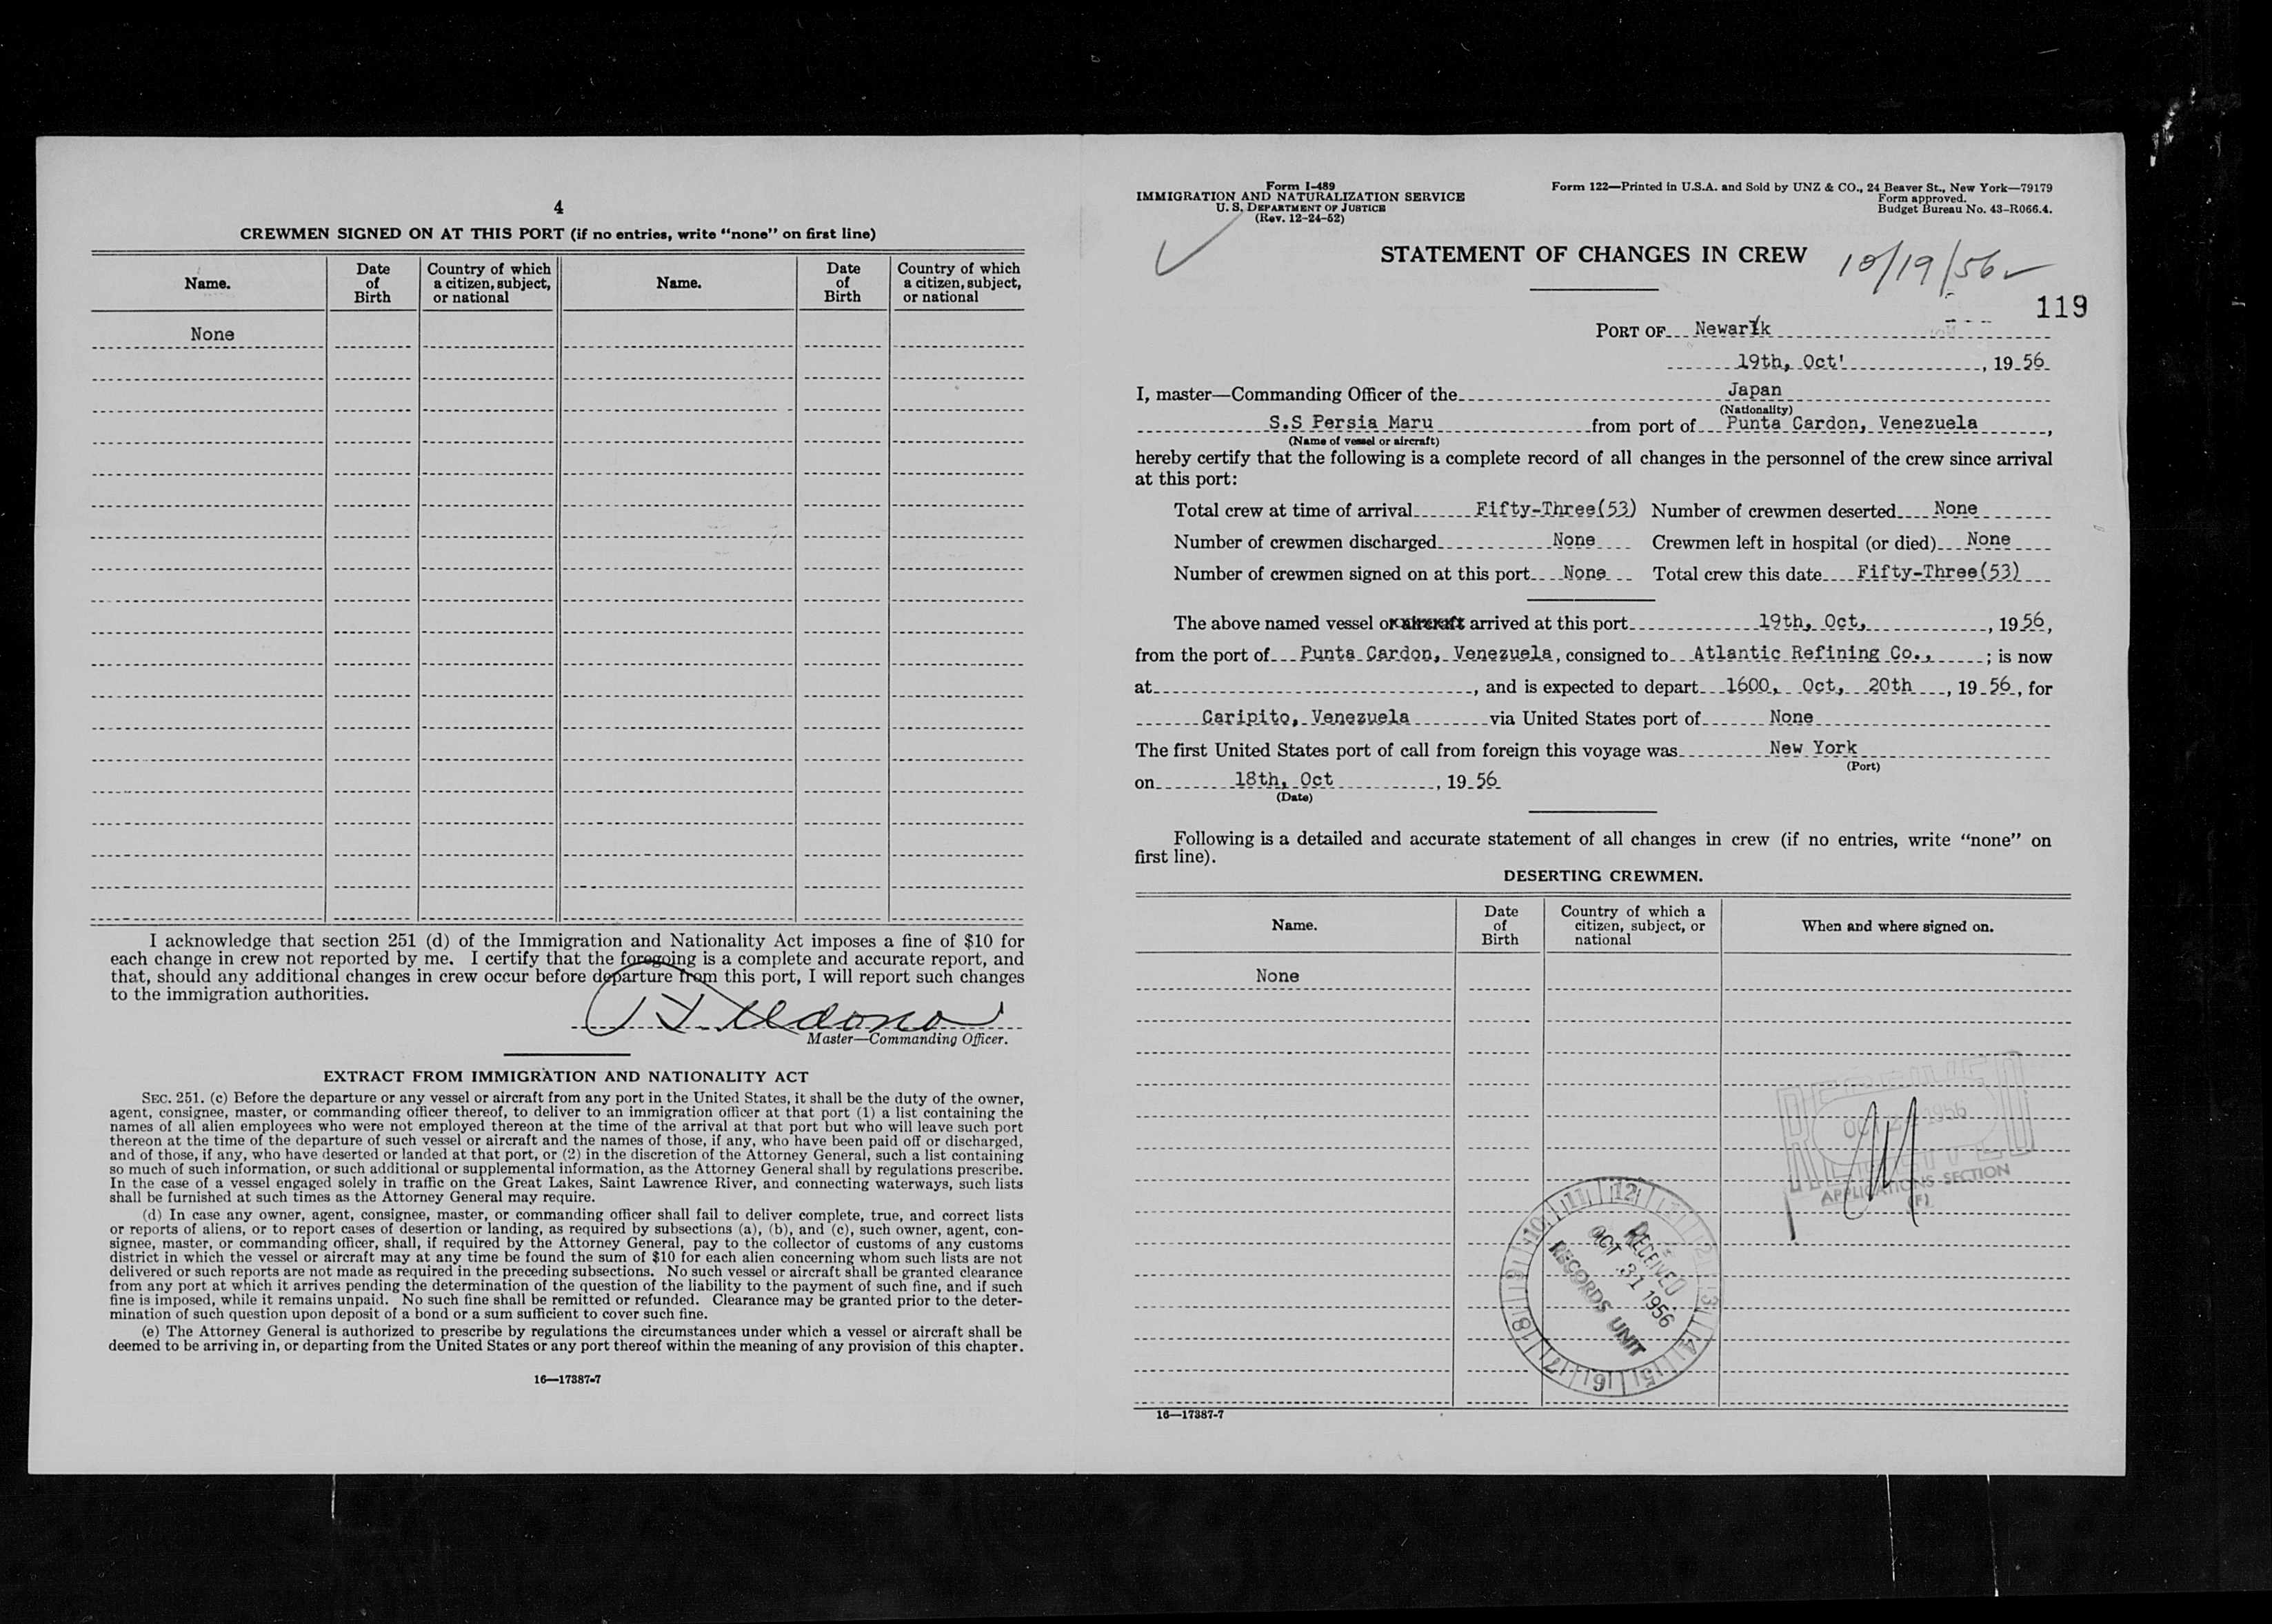 4
CREWMEN SIGNED ON AT THIS PORT (if no entries, write "none" on first line)
Name.
Date of Birth
Country of which a citizen, subject, or national
Name.
Date of Birth
Country of which a citizen, subject, or national
None
I acknowledge that section 251 (d) of the Immigration and Nationality Act imposes a fine of $10 for
each change in crew not reported by me. I certify that the foregoing is a complete and accurate report, and
that, should any additional changes in crew occur before departure from this port, I will report such changes
to the immigration authorities.
Master—Commanding Officer.
EXTRACT FROM IMMIGRATION AND NATIONALITY ACT
SEC. 251. (c) Before the departure or any vessel or aircraft from any port in the United States, it shall be the duty of the owner,
agent, consignee, master, or commanding officer thereof, to deliver to an immigration officer at that port (1) a list containing the
names of all alien employees who were not employed thereon at the time of the arrival at that port but who will leave such port
thereon at the time of the departure of such vessel or aircraft and the names of those, if any, who have been paid off or discharged,
and of those, if any, who have deserted or landed at that port, or (2) in the discretion of the Attorney General, such a list containing
so much of such information, or such additional or supplemental information, as the Attorney General shall by regulations prescribe.
In the case of a vessel engaged solely in traffic on the Great Lakes, Saint Lawrence River, and connecting waterways, such lists
shall be furnished at such times as the Attorney General may require.
(d) In case any owner, agent, consignee, master, or commanding officer shall fail to deliver complete, true, and correct lists
or reports of aliens, or to report cases of desertion or landing, as required by subsections (a), (b), and (c), such owner, agent, con-
signee, master, or commanding officer, shall, if required by the Attorney General, pay to the collector of customs of any customs
district in which the vessel or aircraft may at any time be found the sum of $10 for each alien concerning whom such lists are not
delivered or such reports are not made as required in the preceding subsections. No such vessel or aircraft shall be granted clearance
from any port at which it arrives pending the determination of the question of the liability to the payment of such fine, and if such
fine is imposed, while it remains unpaid. No such fine shall be remitted or refunded. Clearance may be granted prior to the deter-
mination of such question upon deposit of a bond or a sum sufficient to cover such fine.
(e) The Attorney General is authorized to prescribe by regulations the circumstances under which a vessel or aircraft shall be
deemed to be arriving in, or departing from the United States or any port thereof within the meaning of any provision of this chapter.
16—17387-7
Form I-489
IMMIGRATION AND NATURALIZATION SERVICE
U. S. DEPARTMENT OF JUSTICE
(Rev. 12-24-52)
Form 122—Printed in U.S.A. and Sold by UNZ & CO., 24 Beaver St., New York—79179
Form approved.
Budget Bureau No. 43-R066.4.
STATEMENT OF CHANGES IN CREW
10/19/56
119
PORT OF Newark
19th, Oct' , 19 56
I, master—Commanding Officer of the Japan
(Nationality)
S.S Persia Maru from port of Punta Cardon, Venezuela ,
(Name of vessel or aircraft)
hereby certify that the following is a complete record of all changes in the personnel of the crew since arrival
at this port:
Total crew at time of arrival Fifty-Three(53) Number of crewmen deserted None
Number of crewmen discharged None Crewmen left in hospital (or died) None
Number of crewmen signed on at this port None Total crew this date Fifty-Three(53)
The above named vessel or aircraft arrived at this port 19th, Oct, , 19 56,
from the port of Punta Cardon, Venezuela, consigned to Atlantic Refining Co., ; is now
at , and is expected to depart 1600, Oct, 20th , 19 56, for
Caripito, Venezuela via United States port of None
The first United States port of call from foreign this voyage was New York
(Port)
on 18th, Oct , 19 56
(Date)
Following is a detailed and accurate statement of all changes in crew (if no entries, write "none" on
first line).
DESERTING CREWMEN.
Name.
Date of Birth
Country of which a citizen, subject, or national
When and where signed on.
None
RECEIVED
APPLICATIONS SECTION
(F)
12 1 2 3 4 5 6 7 8 9 10 11
RECEIVED
OCT 31 1956
RECORDS UNIT
16—17387-7